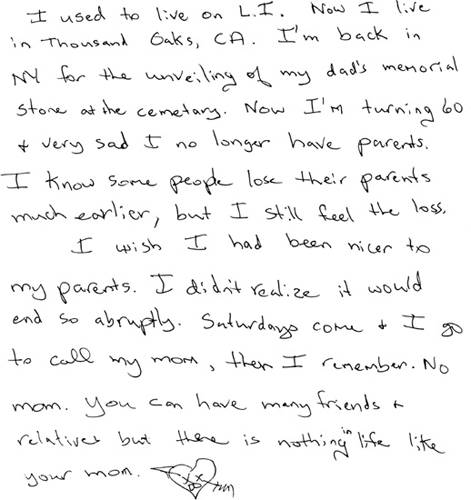 I used to live on L.I. Now I live
in Thousand Oaks, CA. I'm back in
NY for the unveiling of my dad's memorial
stone at the cemetary. Now I'm turning 60
+ very sad I no longer have parents.
I know some people lose their parents
much earlier, but I still feel the loss.
I wish I had been nicer to
my parents. I didn't realize it would
end so abruptly. Saturdays come + I go
to call my mom, then I remember. No
mom. You can have many friends +
relatives but there is nothing in life like
your mom.